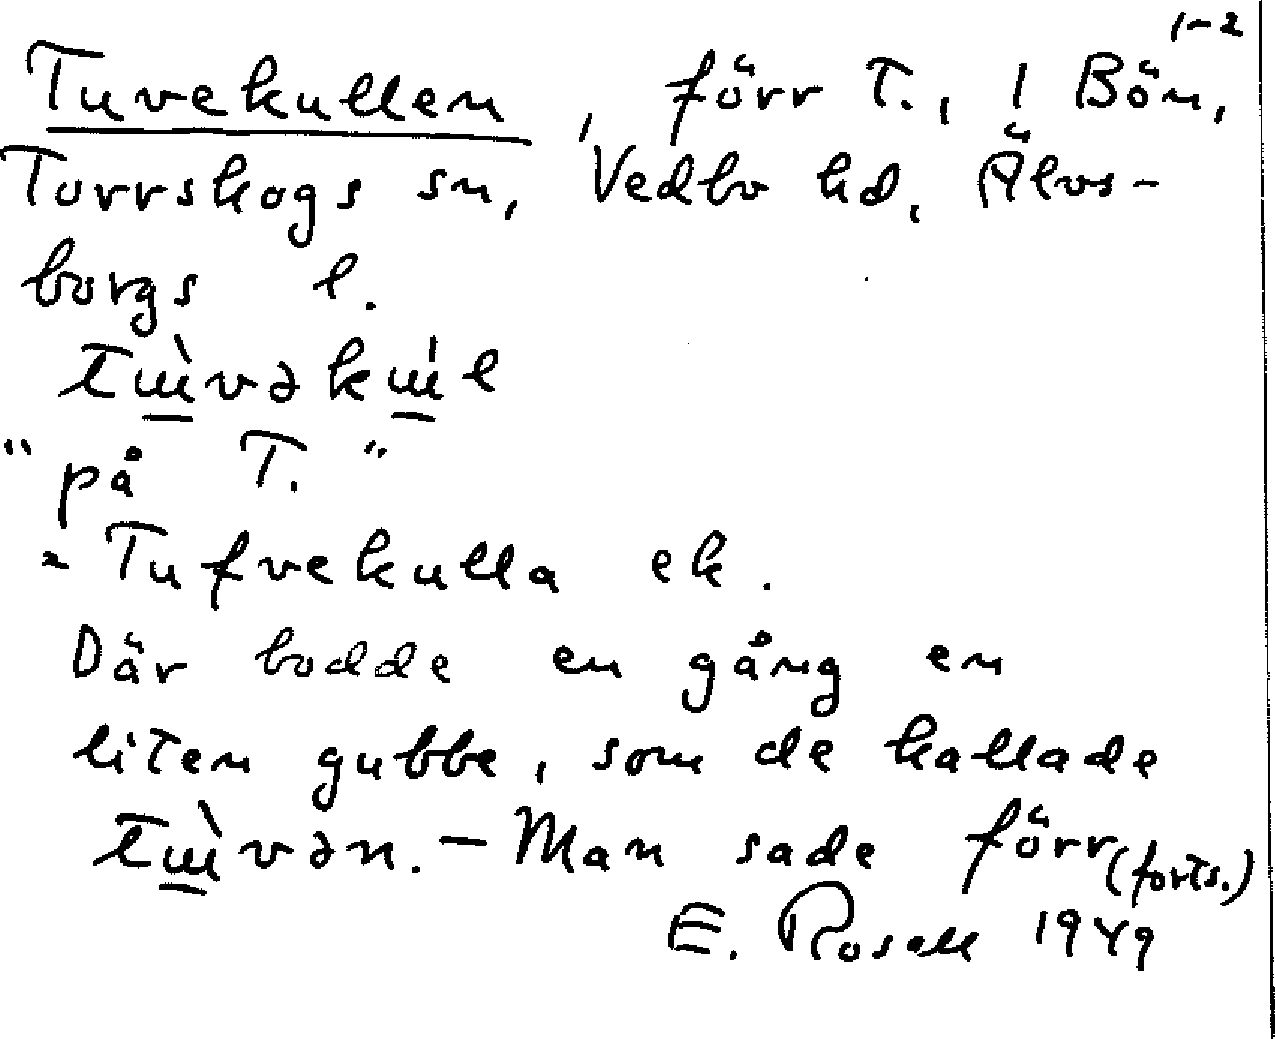 1-2
Tuvekullen, förr T., 1 Bön,
Torrskogs sn, Vedbo hd, Älvs-
borgs l.
tɯ̀vəkɯ́l
"på T."
= Tufvekulla ek.
Där bodde en gång en
liten gubbe, som de kallade
tɯ̀vən. - Man sade förr (forts.)
E. Rosell 1949